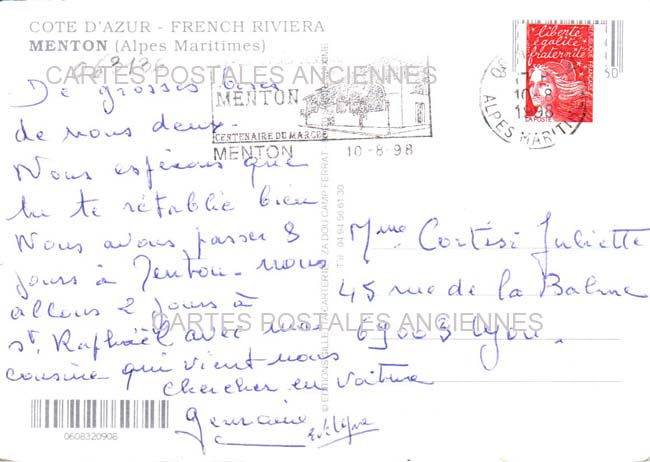 COTE D'AZUR - FRENCH RIVIERA
MENTON (Alpes Maritimes)
CARTES POSTALES ANCIENNES
De grosses bises
de nous deux.
Nous espérons que
tu te rétablie bien
Nous avons passer 8
jours à Menton - nous
allons 2 jours à
St Raphaël avec ma
cousine qui vient nous
chercher en voiture
Germaine
MENTON
CENTENAIRE DU MARCHE
MENTON 10-8-98
liberté
égalité
fraternité
LA POSTE
17 H
10-8
1998
ALPES MARITIMES
Mme Cortési Juliette
45 rue de la Balme
69003 Lyon.
CARTES POSTALES ANCIENNES
Tél. 04 94 56 61 30
0608320908